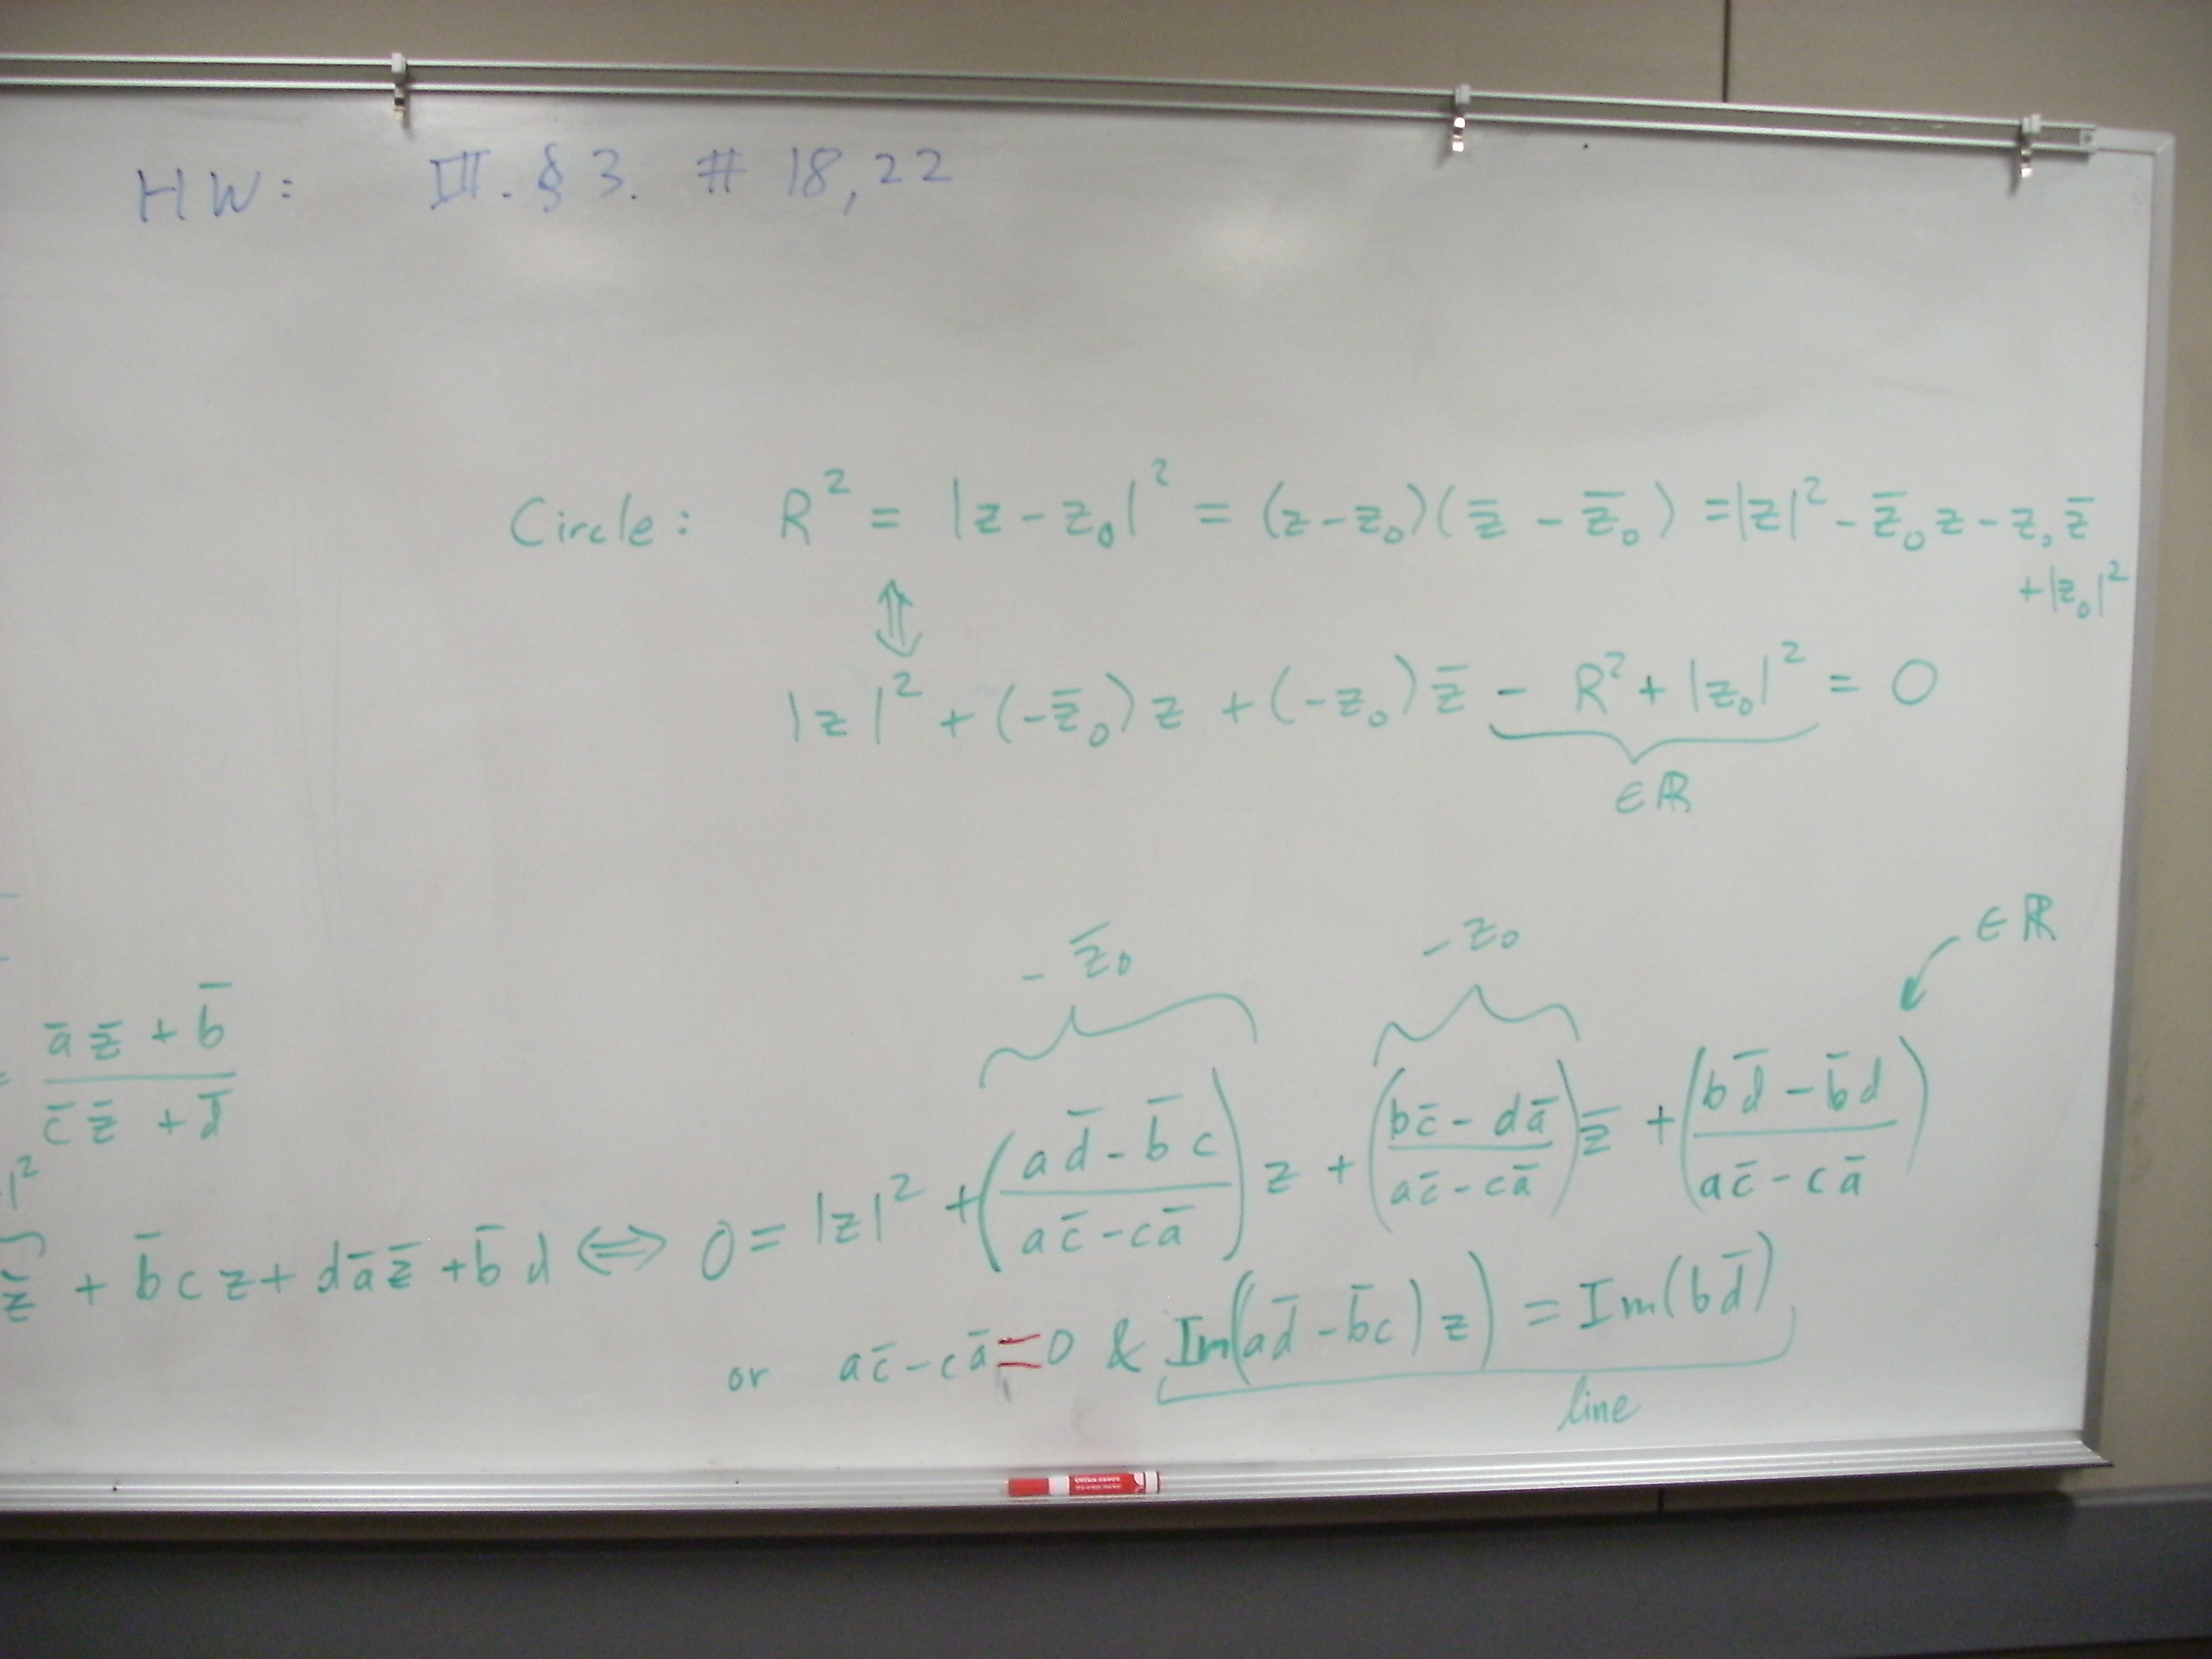 HW: III. § 3. # 18, 22
Circle: R² = |z - z₀|² = (z - z₀)(z̄ - z̄₀) = |z|² - z̄₀z - z₀z̄
+ |z₀|²
⇕
|z|² + (-z̄₀)z + (-z₀)z̄ - R² + |z₀|² = 0
∈ ℝ
- z̄₀ - z₀ ∈ ℝ
= (āz̄ + b̄)/(c̄z̄ + d̄)
|²
z̄ + b̄cz + dāz̄ + b̄d ⇔ 0 = |z|² + ((ad̄ - b̄c)/(ac̄ - cā)) z + ((bc̄ - dā)/(ac̄ - cā)) z̄ + ((bd̄ - b̄d)/(ac̄ - cā))
or ac̄ - cā = 0 & Im((ad̄ - b̄c) z) = Im(bd̄)
line